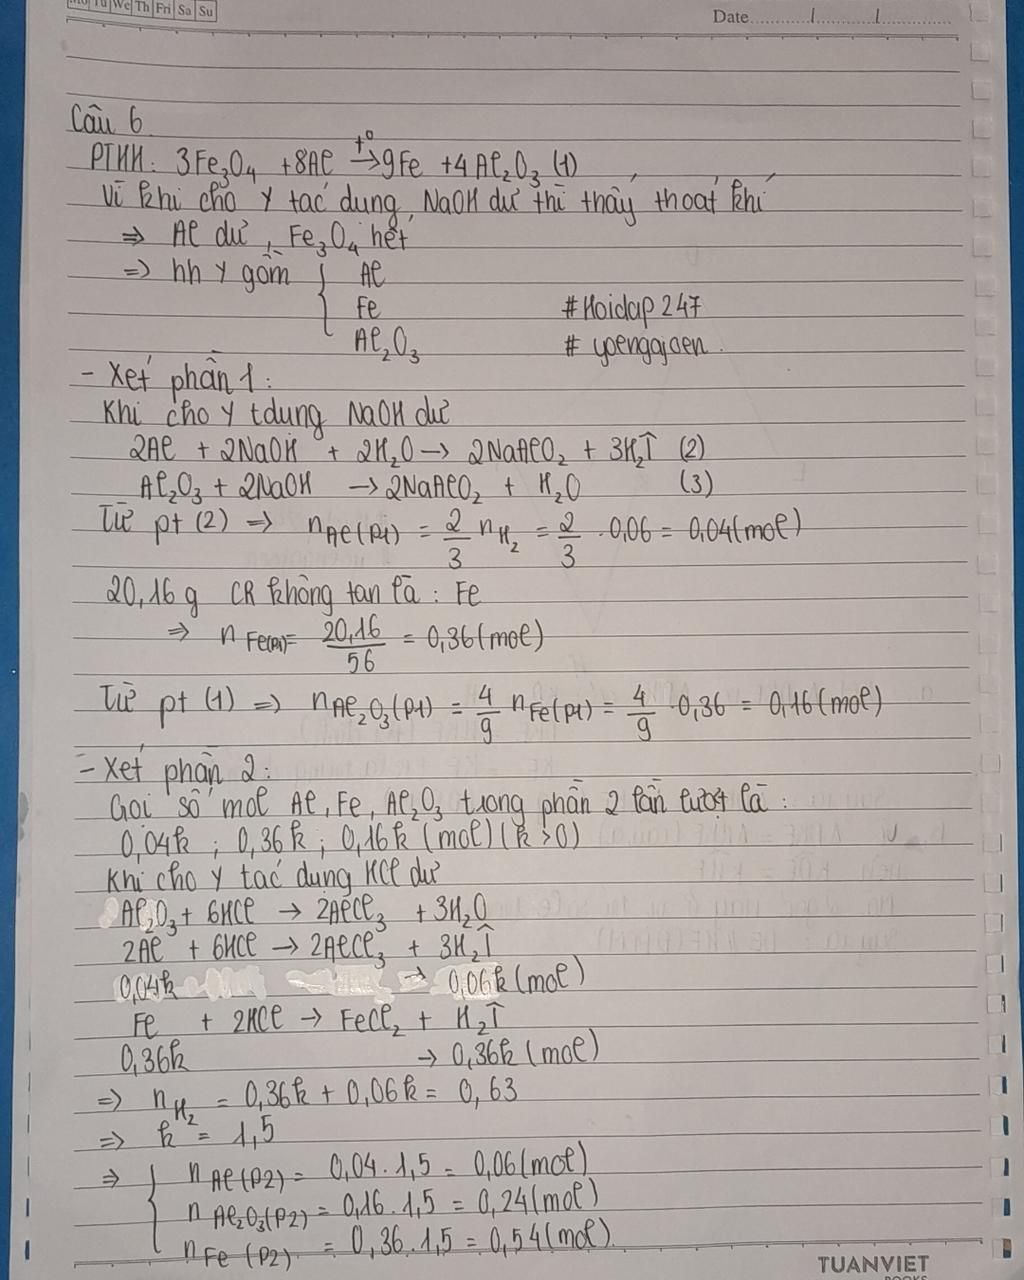 Mo Tu We Th Fri Sa Su
Date.........../............/..............
Câu 6
PTHH: 3Fe₃O₄ + 8Al →(t°) 9Fe + 4Al₂O₃ (1)
Vì khi cho Y tác dụng NaOH dư thì thấy thoát khí
⇒ Al dư, Fe₃O₄ hết
⇒ hh Y gồm { Al
Fe #Hoidap247
Al₂O₃ # yoengajaen.
- Xét phần 1:
Khi cho Y tdung NaOH dư
2Al + 2NaOH + 2H₂O → 2NaAlO₂ + 3H₂↑ (2)
Al₂O₃ + 2NaOH → 2NaAlO₂ + H₂O (3)
Từ pt (2) ⇒ n Al(P1) = 2/3 n H₂ = 2/3 . 0,06 = 0,04 (mol)
20,16g CR không tan là : Fe
⇒ n Fe(P1) = 20,16/56 = 0,36 (mol)
Từ pt (1) ⇒ n Al₂O₃(P1) = 4/9 n Fe(P1) = 4/9 . 0,36 = 0,16 (mol)
- Xét phần 2:
Gọi số mol Al, Fe, Al₂O₃ trong phần 2 lần lượt là :
0,04k ; 0,36k ; 0,16k (mol) (k >0)
Khi cho Y tác dung HCl dư
Al₂O₃ + 6HCl → 2AlCl₃ + 3H₂O
2Al + 6HCl → 2AlCl₃ + 3H₂↑
0,04k → 0,06k (mol)
Fe + 2HCl → FeCl₂ + H₂↑
0,36k → 0,36k (mol)
⇒ n H₂ = 0,36k + 0,06k = 0,63
⇒ k = 1,5
⇒ { n Al(P2) = 0,04 . 1,5 = 0,06 (mol)
n Al₂O₃(P2) = 0,16 . 1,5 = 0,24 (mol)
n Fe (P2) = 0,36 . 1,5 = 0,54 (mol)
TUANVIET
BOOKS